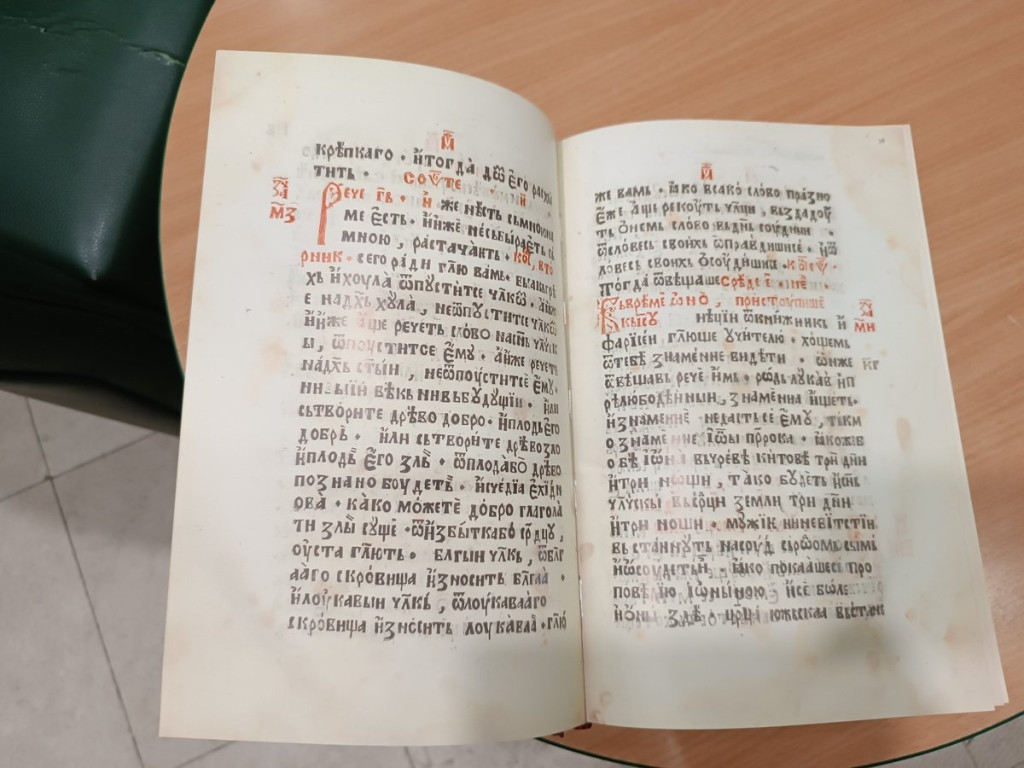 крѣпкаго · и҆тогда̀ дѡ̑ е҆го расхы
тить · соу́те · й
Рече гь · И же нѣсть съмною на
ме е҆сть · и҆и҆жѐ несьбыраеть сь
мною , растачаѥть · кѡ҆, вто
рник · сего ра́ди гл҃ю вамь · всакагрѣ
хь и҆хоула̀ ѿпуститсе чл҃кѡ · а҆иж
е на́дх҃ь ху́ла̀ , неѿпуститсе чл҃кѡ
и҆и҆же а҆ще речеть сло́во насн҃ь чл҃чск
ы , ѿпоуститсе е҆му · а҆и҆же речеть
на́дх҃ь ст҃ын , неѿпоуститсе е҆му ·
нивыїи вѣкь нивьбудущїи · и҆ли
сьтворите дрѣво добро · и҆плодь е҆го
добрь · и҆ли сьтворите дрѣво зло
и҆плодь е҆го зль · ѿплодабо дрѣво
познано боудеть · исчедїа е҆хїдн
ова · како мо́жете добро глагола̀
ти злы̀ суще · ѿи҆збыткабо ср҃дцу ,
оу҆ста гл҃ють · бл҃гыи чл҃кь , ѿбл҃г
ааго скровища и҆зносить бл҃гаа̀ ·
и҆лоукавыи чл҃кь , ѿлоукавааго
скровища и҆зносить лоукавла̀ · гл҃ю
же вамь · ꙗ҆ко всако̀ сло́во пра́зно
е҆же аще рекоуть чл҃ци , въздадоу
ть ѻ҆немь слово вьдн҃ь соудныи ·
ѿсловесь своихь ѿправдишисе · и҆ѿ
ловесь своихь ѻ҆соудишисе ·
тогда ѿвѣщаше срѣде е҃ · не҃
Вьврѣме ѻ҆но̀ , приступише
къіс҃у нѣцїи ѿкнижникь и҆
фарїсеи гл҃юще учи́телю · хощемь
ѿтебѣ знаменіе видѣти · ѡ҆нже кг
ѿвѣщавь рече и҆мь · родь лукавь и҆п
рѣлюбодѣиныи , знаменїа и҆щеть ·
и҆знаменїе недастьсе е҆му , тькм
о знаменїе і҆ѡны пр҃рока · ꙗ҆кожіб
о бѣ і҆ѡна вьчревѣ китове три дн҃и
и҆три нощи , тако будеть и҆сн҃ь
чл҃чскы вьср҃дци земли три дн҃и
и҆три нощи · мужїе нїневїтстїи
вьстануть насруд сьродомь сымь
и҆ѡ҆соудеть и · ꙗ҆ко покаашесе про
повѣїю і҆ѡныною , и҆се боле
и҆ѻ҆ны здѣ · цр҃ца южьскаа вьстанеть